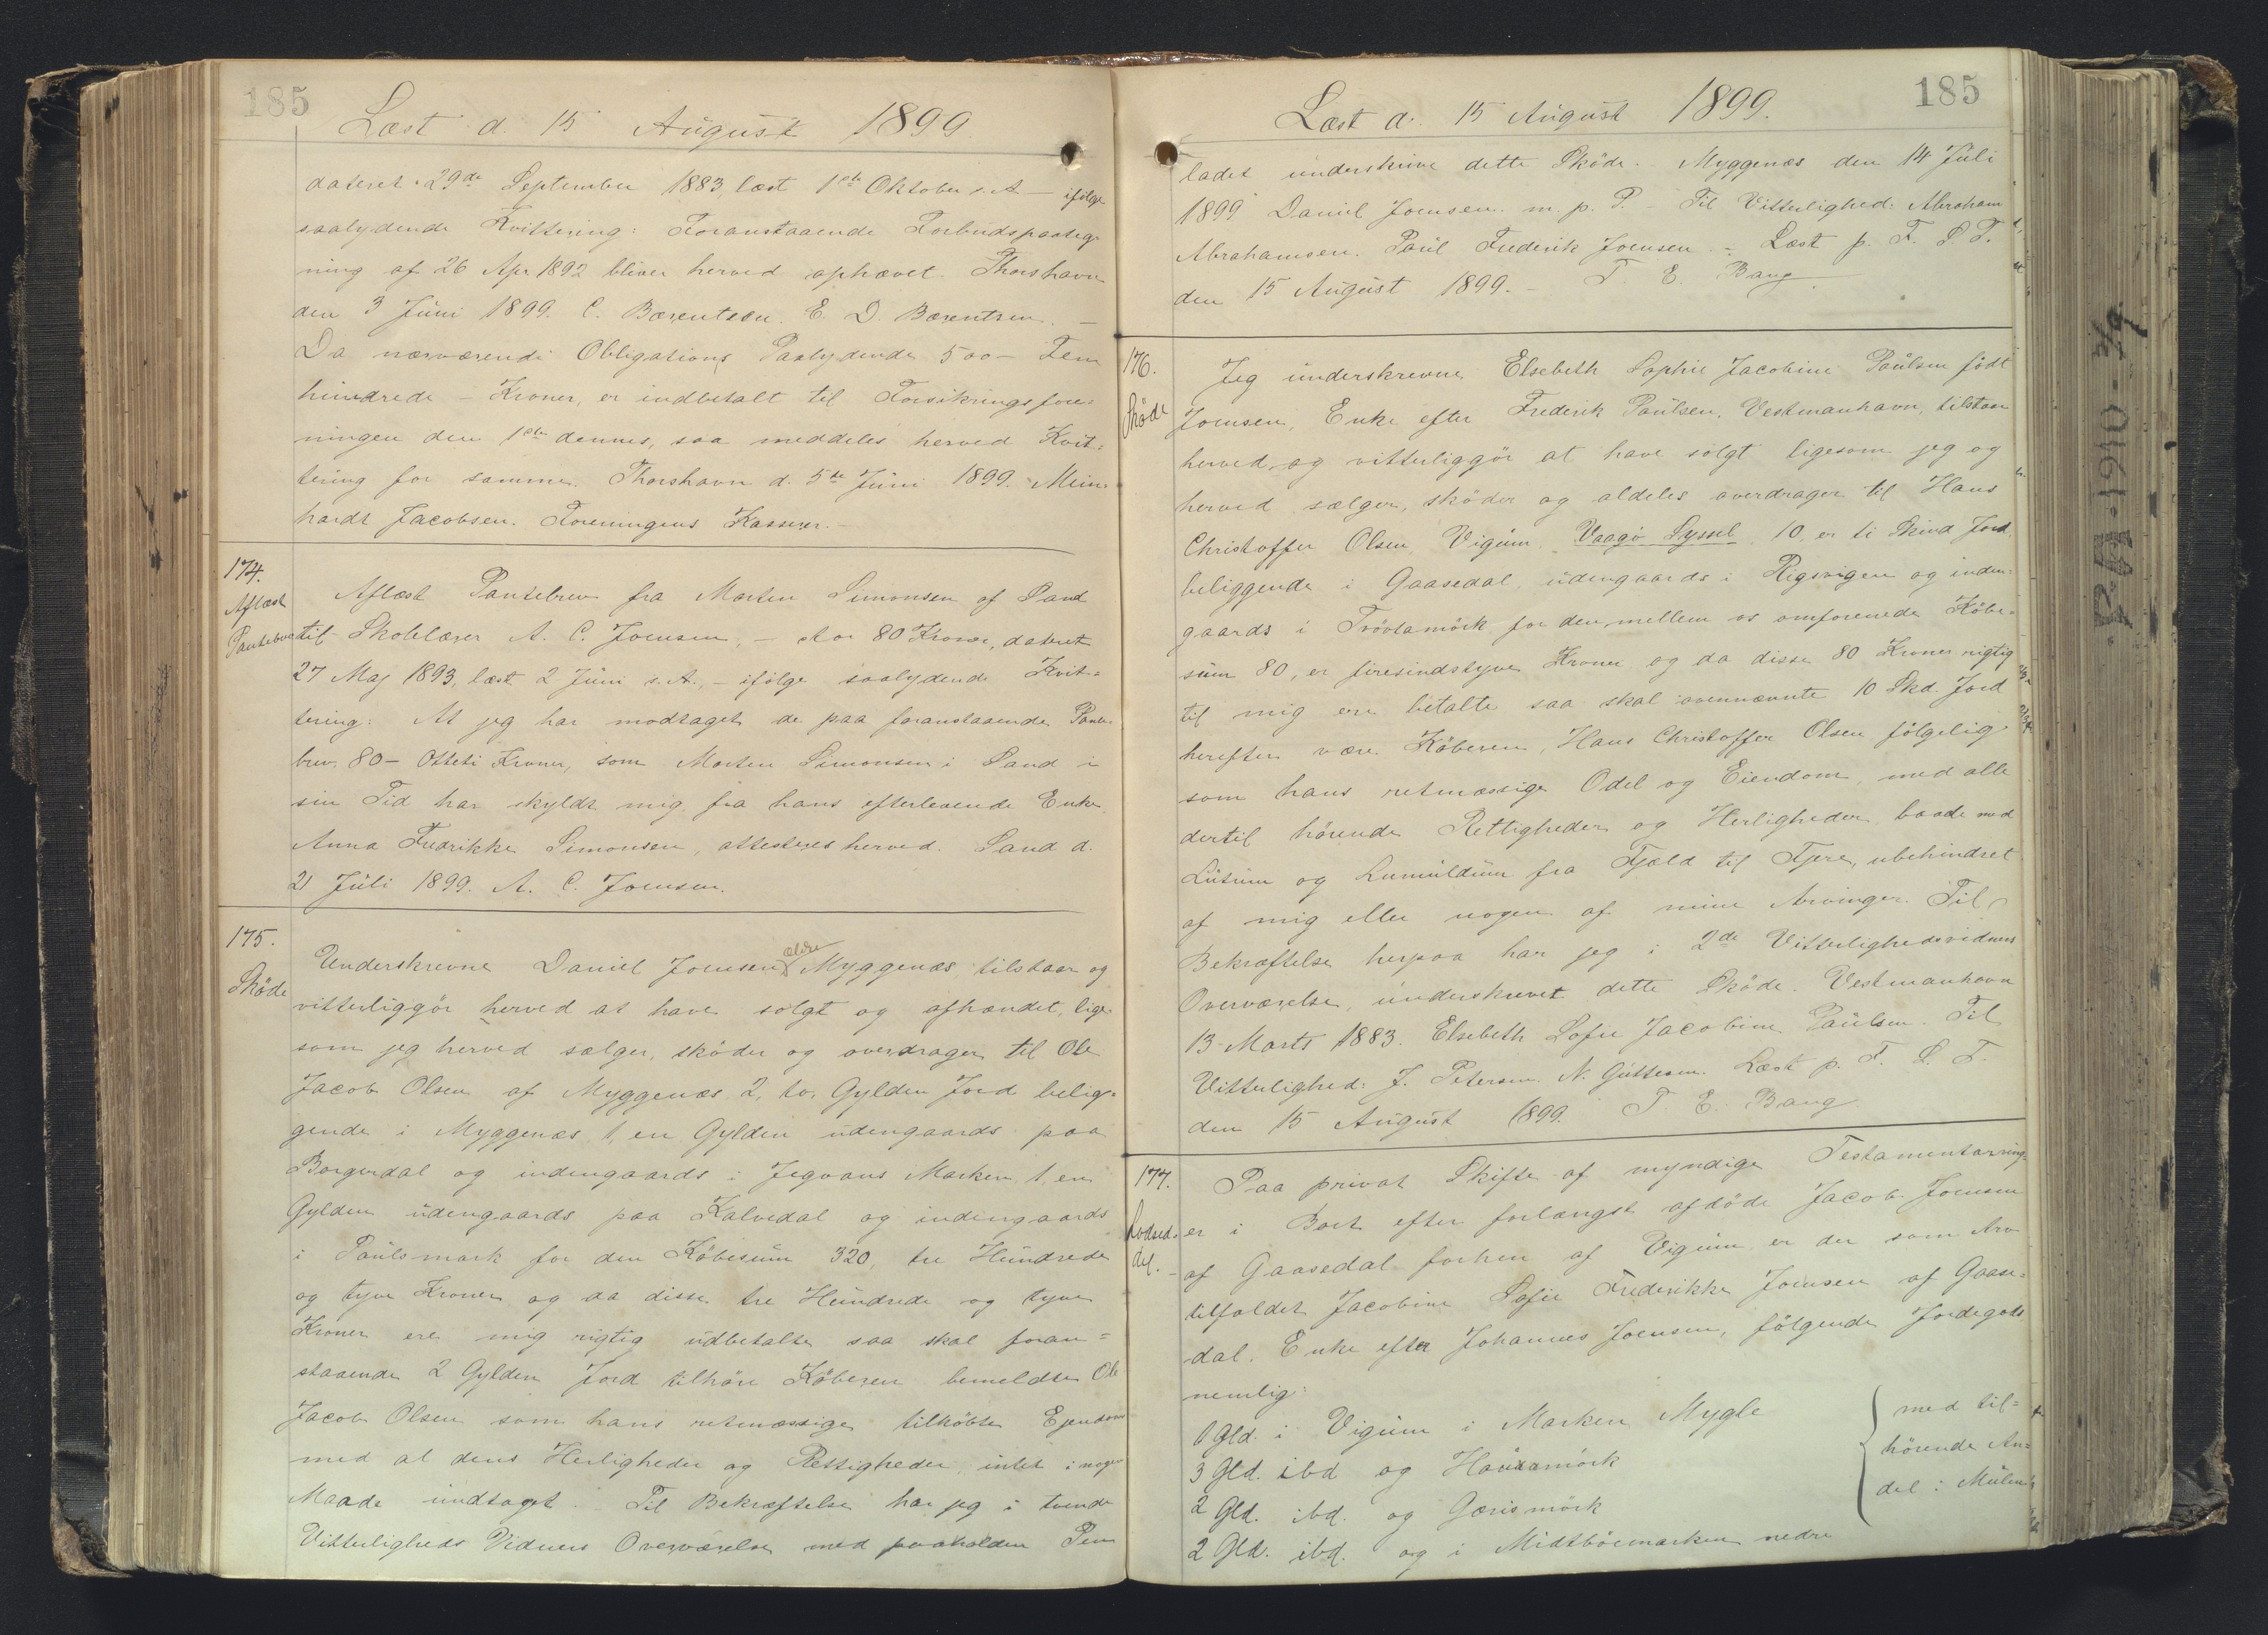 185
Læst d. 15 August 1899.
dateret 29de September 1883, læst 1ste Oktober s. A. – ifølge
saalydende Kvittering: Foranstaaende Forbudspaateg-
ning af 26 Apr 1892 bliver herved ophævet. Thorshavn
den 3 Juni 1899. C. Bærentsen. E. D. Bærentsen. –
Da nærværende Obligations Paalydende 500 – Fem
hundrede – Kroner, er indbetalt til Forsikringsfore-
ningen den 1ste dennes, saa meddeles herved Kvit-
tering for samme. Thorshavn d. 5te Juni 1899. Mein-
hardt Jacobsen. Foreningens Kasserer. –
174.
Aflæst
Pantebrev
Aflæst Pantebrev fra Morten Simonsen af Sand
til Skolelærer A. C. Joensen, – stor 80 Kroner, dateret
27 Maj 1893, læst 2 Juni s. A., – ifølge saalydende Kvit=
tering: At jeg har modtaget de paa foranstaaende Pante-
brev 80 – Otteti Kroner, som Morten Simonsen i Sand i
sin Tid har skyldt mig, fra hans efterlevende Enke
Anna Fredrikke Simonsen, attesteres herved. Sand d.
21 Juli 1899. A. C. Joensen.
175.
Skøde
Underskrevne Daniel Joensen ældre Myggenæs tilstaar og
vitterliggör herved at have solgt og afhændet, lige-
som jeg herved sælger, skøder og overdrager til Ole
Jacob Olsen af Myggenæs 2, to, Gylden Jord belig=
gende i Myggenæs 1, en Gylden udengaards paa
Borgardal og indengaards i Jegvans Marken, 1, en
Gylden udengaards paa Kalvedal og indengaards
i Paulsmark for den Købesum 320, tre Hundrede
og tyve Kroner og da disse tre Hundrede og tyve
Kroner ere mig rigtig udbetalte saa skal foran=
staaende 2 Gylden Jord tilhöre Köberen bemeldte Ole
Jacob Olsen som hans retmæssige tilköbte Ejendom
med al dens Herligheder og Rettigheder, intet i nogen
Maade undtaget. Til Bekræftelse har jeg i tvende
Vitterligheds Vidners Overværelse med paaholden Pen
185
Læst d. 15 August 1899.
ladet underskrive dette Sköde. Myggenæs den 14 Juli
1899 Daniel Joensen. m. p. P. – Til Vitterlighed: Abraham
Abrahamsen. Paul Frederik Joensen. – Læst p. F. S. T.
den 15 August 1899. – T. E. Bang
176.
Sköde
Jeg underskrevne Elsebeth Sophie Jacobine Paulsen födt
Joensen, Enke efter Frederik Paulsen, Vestmanhavn, tilstaar
herved og vitterliggör at have solgt ligesom jeg og
herved sælger, sköder og aldeles overdrager til Hans
Christoffer Olsen Vigum, Vaagö Syssel, 10, er ti Skind Jord
beliggende i Gaasedal udengaards i Rigsvigen og inden-
gaards i Trövlamörk for den mellem os omforenede Købe-
sum 80, er firesindstyve Kroner og da disse 80 Kroner rigtig
til mig ere betalte saa skal ovennævnte 10 Skd. Jord
herefter være Köberen, Hans Christoffer Olsen, fölgelig
som hans retmæssige Odel og Eiendom, med alle
dertil hörende Rettigheder og Herligheder, baade med
Lutum og Lunnindum fra Fjæld til Fjære, ubehindret
af mig eller nogen af mine Arvinger. Til
Bekræftelse herpaa har jeg i 2de Vitterlighedsvidners
Overværelse, underskrevet dette Sköde. Vestmanhavn
13 Marts 1883. Elsebeth Sofie Jacobine Paulsen. Til
Vitterlighed: J. Petersen. N. Guttesen. Læst p. F. S. T.
den 15 August 1899. T. E. Bang
177.
Lodsed-
del. –
Paa privat Skifte af myndige Testamentarving-
er i Boet efter forlængst afdöde Jacob Joensen
af Gaasedal forhen af Vigum er der som Arv
tilfaldet Jacobine Sofie Frederikke Joensen af Gaase-
dal. Enke efter Johannes Joensen, fölgende Jordegods
nemlig:
1 Gld. i Vigum i Marken Mygle
3 Gld. ibd og Hansamörk
2 Gld. ibd. og Gærismörk
2 Gld. ibd. og i Midtböemarken nedre
med til-
hörende An-
del i Mulen
P.B.A. 1910 - 3/9